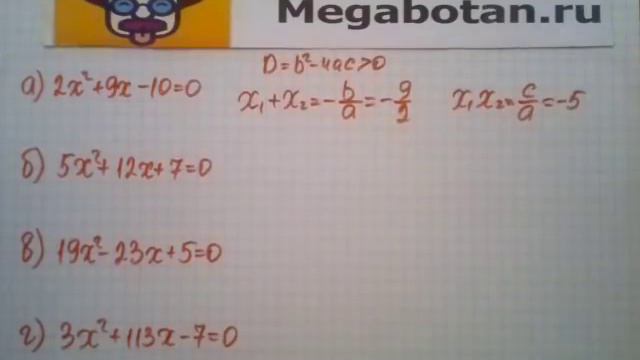 Megabotan.ru
D = b² - 4ac > 0
а) 2x² + 9x - 10 = 0 x₁ + x₂ = - b/a = - 9/2 x₁x₂ = c/a = -5
б) 5x² + 12x + 7 = 0
в) 19x² - 23x + 5 = 0
г) 3x² + 113x - 7 = 0